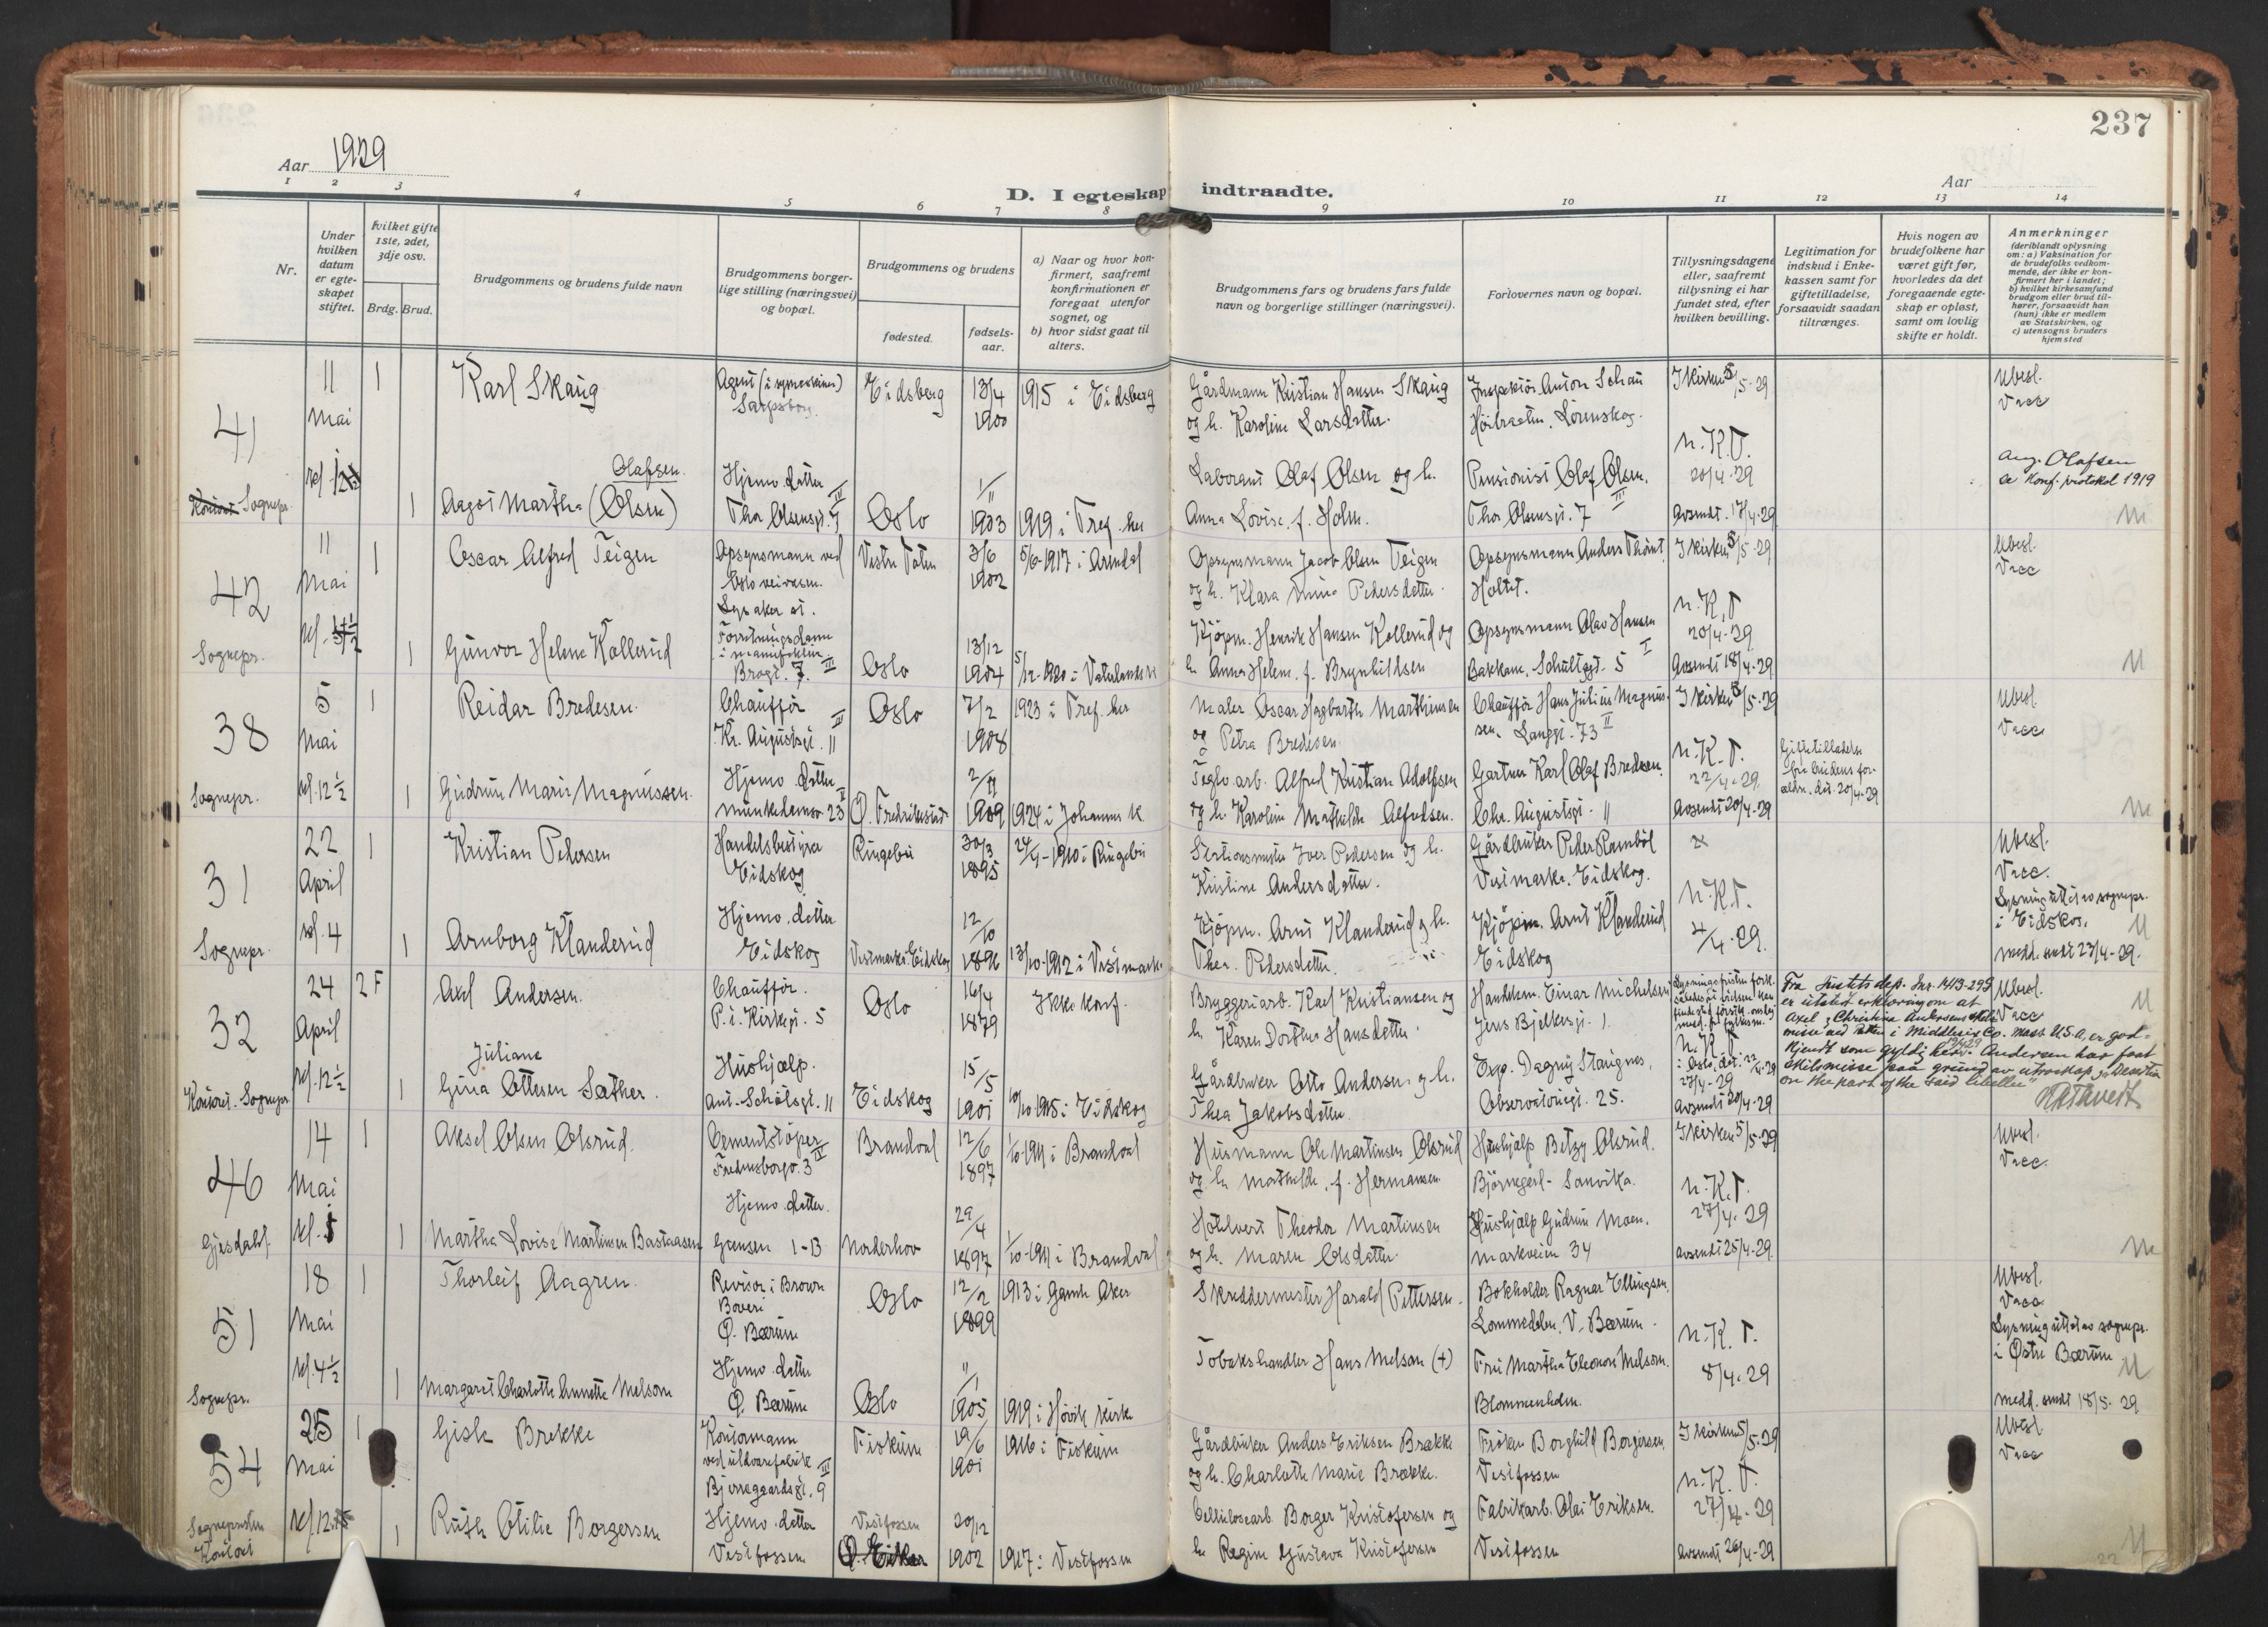 237
Aar 1929
Aar
D. I egteskap indtraadte.
1 2 3 4 5 6 7 8 9 10 11 12 13 14
Nr.
Under hvilken datum er egteskapet stiftet.
hvilket gifte 1ste, 2det, 3dje osv.
Brdg. Brud.
Brudgommens og brudens fulde navn
Brudgommens borgerlige stilling (næringsvei) og bopæl.
Brudgommens og brudens
fødested.
fødselsaar.
a) Naar og hvor konfirmert, saafremt konfirmationen er foregaat utenfor sognet, og
b) hvor sidst gaat til alters.
Brudgommens fars og brudens fars fulde navn og borgerlige stillinger (næringsvei).
Forlovernes navn og bopæl.
Tillysningsdagene eller, saafremt tillysning ei har fundet sted, efter hvilken bevilling.
Legitimation for indskud i Enkekassen samt for giftetilladelse, forsaavidt saadan tiltrænges.
Hvis nogen av brudefolkene har været gift før, hvorledes da det foregaaende egteskap er opløst, samt om lovlig skifte er holdt.
Anmerkninger (deriblandt oplysning om: a) Vaksination for de brudefolks vedkommende, der ikke er konfirmert her i landet; b) hvilket kirkesamfund brudgom eller brud tilhører, forsaavidt han (hun) ikke er medlem av Statskirken, og c) utensogns bruders hjemsted
41 11 Mai 1 Karl Skaug Agent (i symaskiner) Sarpsborg Eidsberg 13/4 1900 1915 i Eidsberg Gårdmann Kristian Hansen Skaug og h. Karoline Larsdatter. Inspektør Anton Schau Lørenskog. I kirken 5/5-29 Ubesl. Vacc
Sognepr. 1 Aagot Martha (Olsen) Olafsen. Hjemv. datter Thor Olsensgt. 7 III Oslo 1/11 1903 1919 i Tref. her Laborant Olaf Olsen og h. Anna Lovise, f. Holm. Pensionist Olaf Olsen, Thor Olsensgt. 7 III N.K.T. 20/4-29 Avsendt 17/4-29 Ang. Olafsen se Konf. protokol 1919
42 11 Mai 1 Oscar Alfred Teigen Opsynsmann ved Oslo veivesen. Lysaker st. Vestre Toten 3/6 1902 5/6-1917 i Arendal Opsynsmann Jacob Olsen Teigen og h. Klara Mina Pedersdatter. Opsynsmann Anders Holtet. I kirken 5/5-29 Ubesl. Vacc
Sognepr. 1 Gunvor Helene Kollerud Forretningsdame i manufaktur. Brogt. 7. III Oslo 13/12 1904 5/12-1920 i Vaterlands k. Kjøpm. Henrik Hansen Kollerud og h. Anna Helene, f. Brynhildsen Opsynsmann Olav Hansen Bakkam, Schultzgt. 5 I N.K.T. 20/4-29 Avsendt 18/4-29
38 5 Mai 1 Reidar Bredesen. Chauffør Kr. Augustsgt. 11 III Oslo 7/2 1908 1923 i Tref. her Maler Oscar Hagbarth Marthinsen og Petra Bredesen. Chauffør Hans Julius Magnussen, Langgt. 73 II I kirken 5/5-29 Ubesl. Vacc
Sognepr. kl. 12½ 1 Gudrun Marie Magnussen. Hjemv. datter Munkedamsv 23 II Ø. Fredrikstad 2/11 1909 1924 i Johannes K. Teglv. arb. Alfred Kristian Adolfsen og h. Karoline Mathilde Alfredsen. Gartner Karl Olaf Bredesen, Chr. Augustsgt. 11 N.K.T. 22/4-29. Avsendt 20/4-29 Giftetilladelse fra brudens forældre, dat. 20/4-29
31 22 April 1 Kristian Pedersen Handelsbestyrer Eidskog Ringebu 30/3 1895 24/4-1910 i Ringebu Stationsmester Iver Pedersen og h. Kristine Andersdatter. Gårdbruker Peder Rambøl Vestmarka. Eidskog. Ubesl. Vacc. Lysning utst av sognepr. i Eidskog.
Sognepr. kl. 4 1 Arnborg Klanderud Hjemv. datter Eidskog Vestmarka Eidskog 12/10 1896 13/10-1912 i Vestmarka Kjøpm. Arnt Klanderud og h. Thea Pedersdatter. Kjøpm. Arnt Klanderud Eidskog N.K.T. 4/4-29. medd. sendt 23/4-29.
32 24 April 2 F Axel Andersen. Chauffør. P. i. Kirkegt. 5 Oslo 16/4 1879 Ikke konf. Bryggeriarb. Karl Kristiansen og h. Karen Dorthea Hansdatter. Handelsm. Einar Michelsen Jens Bjelkesgt. 1. Ubesl. Vacc
Fra Justitsdep. Jnr. 1413-29 J er utstedt erklæring om at Axel & Christine Andersens skilsmisse ved retten i Middlesex Co. Mass. U.S.A. er godkjendt som gyldig her. Andersen har faat skilsmisse paa grund av utroskap, "Desertion on the part of the said libellee"
Kontoret. Sognepr. kl. 12½ 1 Gina Juliane Ottesen Sæther. Hushjælp. Ant. Schølsgt. 11 Eidskog 15/5 1901 10/10 1915 i Eidskog Gårdbruker Otto Andersen og h. Thea Jakobsdatter. Exp. Dagny Staugnes, Observatoriegt. 25. N.K.T. 27/4-29 Avsendt 20/4-29
46 14 Mai 1 Aksel Olsen Olsrud. Cementstøper Fredensborgv. 3 IV Brandval 12/6 1897 1/10-1911 i Brandval Husmann Ole Martinsen Olsrud og h. Mathilde, f. Hermansen Hushjælp Betzy Olsrud. Bjørnegård-Sanvika. I kirken 5/5-29 Ubesl. Vacc.
Gjesdahl. kl. 5 1 Martha Lovise Martinsen Bastaasen Hjemv. datter. Grensen 1-B Norderhov 29/4 1897 1/10-1911 i Brandval Hotelvert Theodor Martinsen og h. Maren Olsdatter. Hushjælp Gudrun Moen. Markveien 34 N.K.T. 27/4-29 avsendt 25/4-29.
51 18 Mai 1 Thorleif Aagren. Revisor i Brown Boveri Ø. Bærum Oslo 12/2 1899 1913 i Gamle Aker Skreddermester Harald Pettersen. Bokholder Ragnar Ellingsen. Lommedalen, V. Bærum. Ubesl. Vacc Lysning utst av sognepr. i Østre Bærum
Sognepr. kl. 4½ 1 Margaret Charlotte Annette Melsom Hjemv. datter Ø. Bærum Oslo 11/1 1905 1919 i Høvik kirke Tobakshandler Hans Melsom (+) Fru Martha Eleonore Melsom. Blommenholm. N.K.T. 8/4-29 medd. sendt 18/5-29
54 25 Mai 1 Gisle Brekke Kontormann ved uldvarefabrik Bjerregaardsgt. 9 III Fiskum 19/6 1901 1916 i Fiskum Gårdbruker Anders Eriksen Brække og h. Charlotte Marie Brække. Frøken Borghild Borgersen Vestfossen I kirken 5/5-29 Ubesl Vacc
Sognepresten Kontoret 1 Ruth Otilie Borgersen Hjemv. datter Vestfossen Vestfossen Ø. Eiker 20/12 1902 1917 i Vestfossen Cellulosearb. Borger Kristofersen og h. Regine Gustava Kristofersen Fabrikarb. Olai Eriksen. Vestfossen N.K.T. 27/4-29 Avsendt 26/4-29